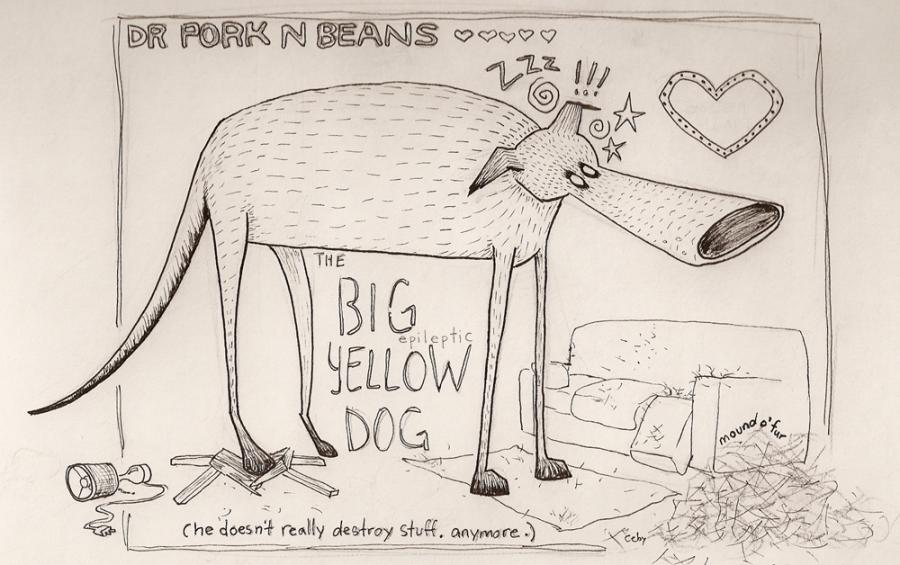 DR PORK N BEANS
ZZZZ !!!
THE
BIG
epileptic
YELLOW
DOG
mound o' fur
(he doesn't really destroy stuff. anymore.)